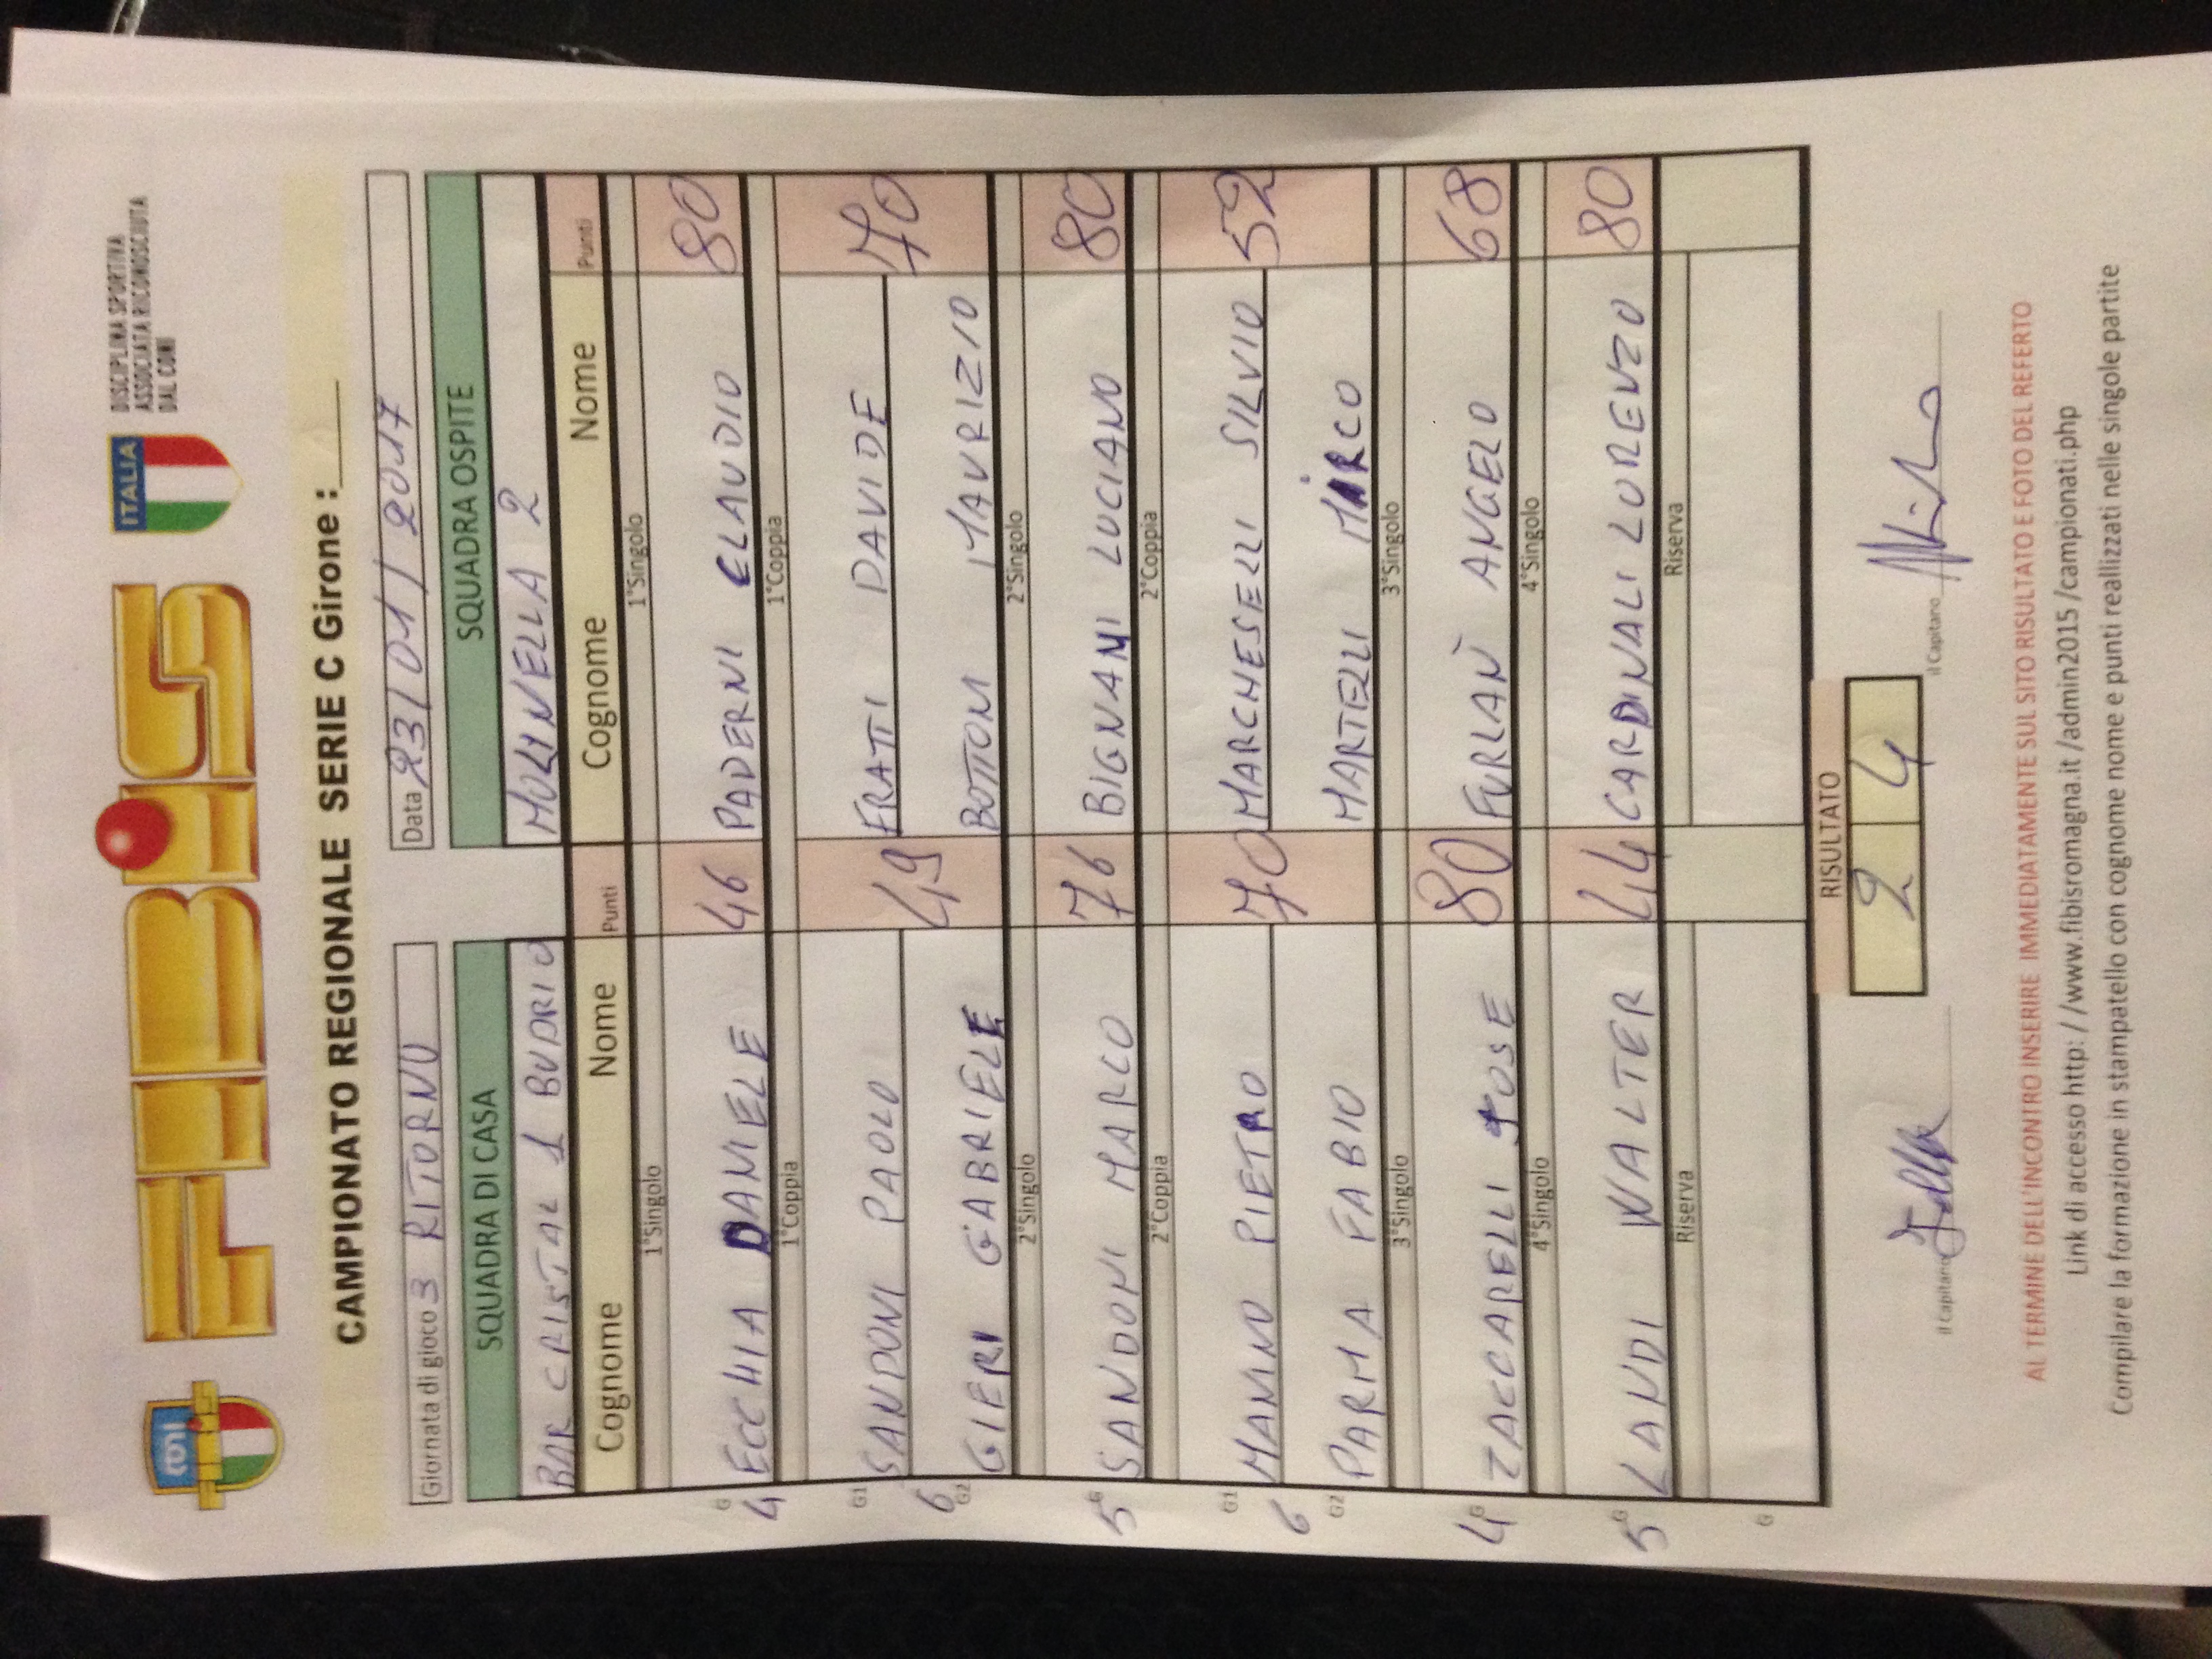 CONI
FIBiS
ITALIA
DISCIPLINA SPORTIVA
ASSOCIATA RICONOSCIUTA
DAL CONI
CAMPIONATO REGIONALE SERIE C Girone :____
Giornata di gioco 3 RITORNO Data 23/01/2017
SQUADRA DI CASA SQUADRA OSPITE
BAR CRISTAL 1 BUDRIO MOLINELLA 2
Cognome Nome Punti Cognome Nome Punti
1°Singolo 1°Singolo
G 4 ECCHIA DANIELE 46 PADERNI CLAUDIO 80
1°Coppia 1°Coppia
G1 SANDONI PAOLO FRATI DAVIDE
6 49 70
G2 GIERI GABRIELE BOTTONI MAURIZIO
2°Singolo 2°Singolo
G 5 SANDONI MARCO 76 BIGNAMI LUCIANO 80
2°Coppia 2°Coppia
G1 MANINO PIETRO 70 MARCHESELLI SILVIO 52
6
G2 PARMA FABIO MARTELLI MIRCO
3°Singolo 3°Singolo
G 4 ZACCARELLI JOSE 80 FURLAN ANGELO 68
4°Singolo 4°Singolo
G 5 LANDI WALTER 44 CARDINALI LORENZO 80
Riserva Riserva
G
RISULTATO
2 4
il Capitano il Capitano
AL TERMINE DELL'INCONTRO INSERIRE IMMEDIATAMENTE SUL SITO RISULTATO E FOTO DEL REFERTO
Link di accesso http: / /www.fibisromagna.it /admin2015 /campionati.php
Compilare la formazione in stampatello con cognome nome e punti reallizzati nelle singole partite